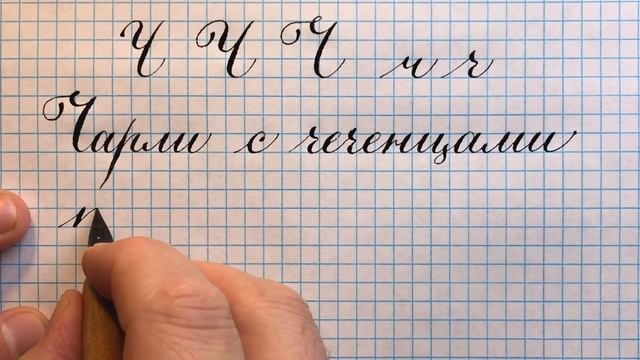 Ч Ч Ч ч ч
Чарли с чеченцами